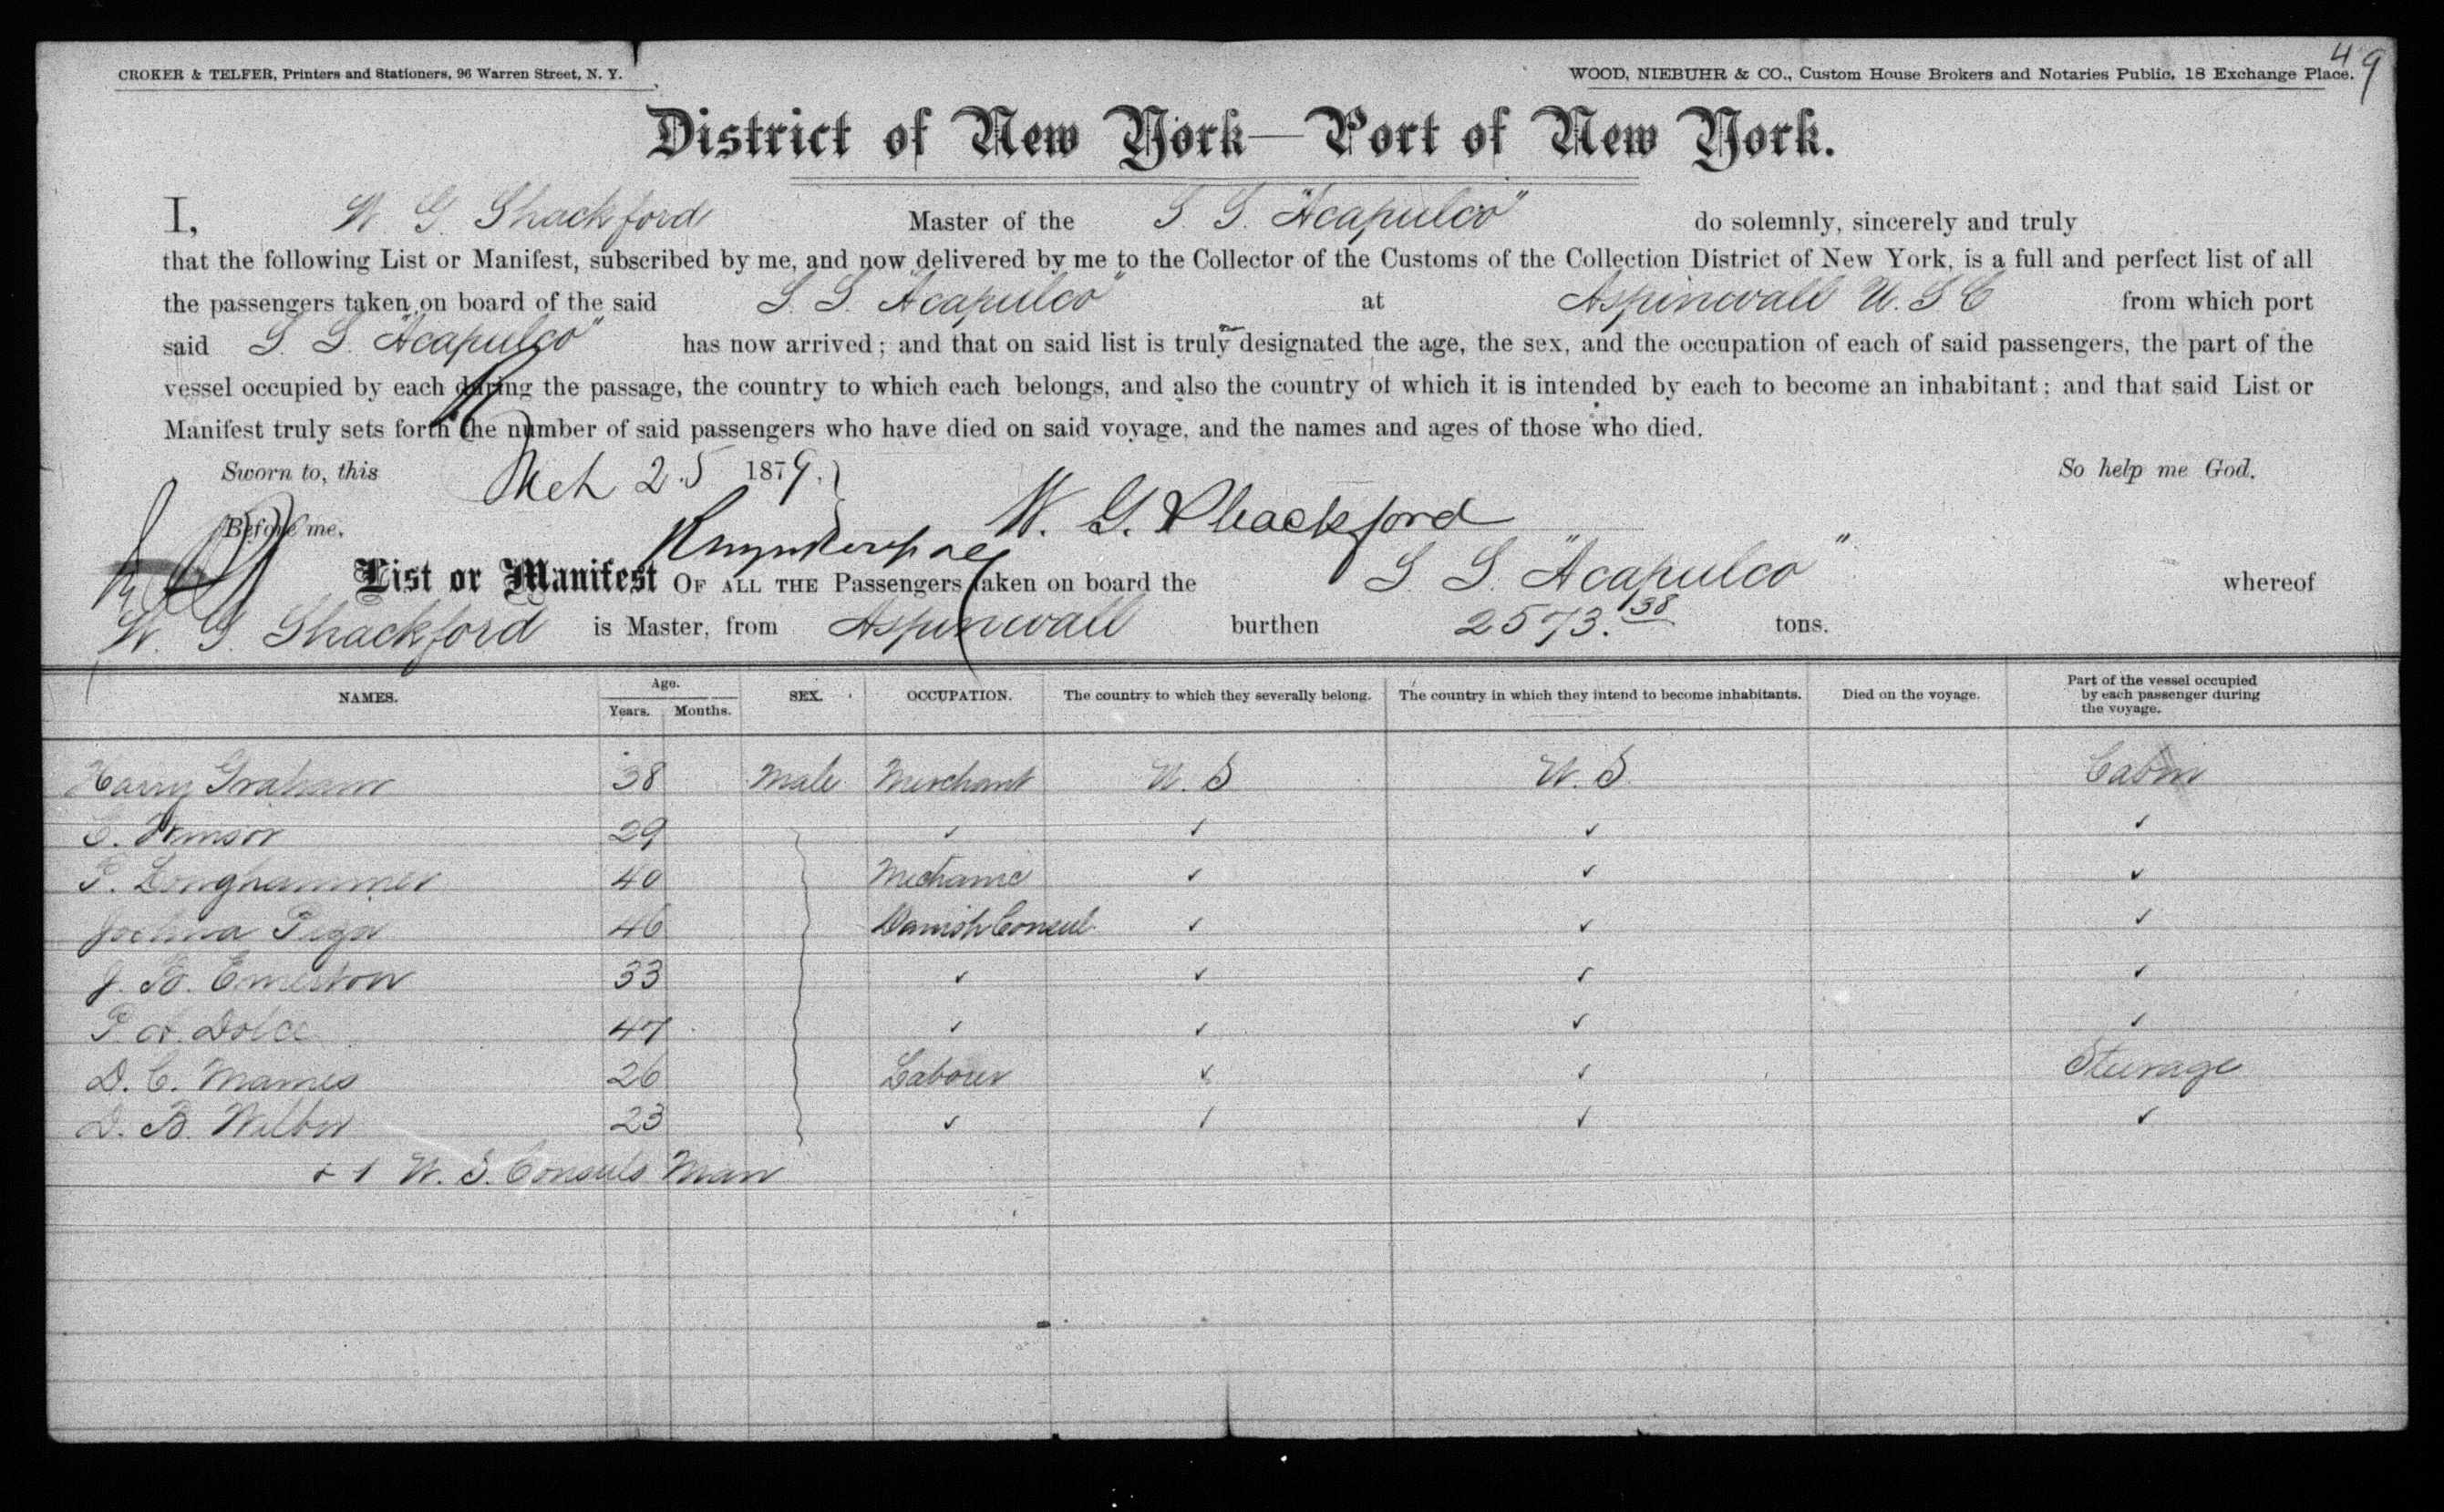 49
CROKER & TELFER, Printers and Stationers, 96 Warren Street, N. Y.
WOOD, NIEBUHR & CO., Custom House Brokers and Notaries Public, 18 Exchange Place.
District of New York—Port of New York.
I, W. G. Shackford Master of the S. S. "Acapulco" do solemnly, sincerely and truly
that the following List or Manifest, subscribed by me, and now delivered by me to the Collector of the Customs of the Collection District of New York, is a full and perfect list of all
the passengers taken on board of the said S. S. "Acapulco" at Aspinwall U. S. C from which port
said S. S. "Acapulco" has now arrived; and that on said list is truly designated the age, the sex, and the occupation of each of said passengers, the part of the
vessel occupied by each during the passage, the country to which each belongs, and also the country of which it is intended by each to become an inhabitant; and that said List or
Manifest truly sets forth the number of said passengers who have died on said voyage, and the names and ages of those who died.
Sworn to, this Mch 25 1879. So help me God.
Before me, W. G. Shackford
List or Manifest OF ALL THE Passengers taken on board the S. S. "Acapulco" whereof
W. G. Shackford is Master, from Aspinwall burthen 2573.38 tons.
NAMES. Age. Years. Months. SEX. OCCUPATION. The country to which they severally belong. The country in which they intend to become inhabitants. Died on the voyage. Part of the vessel occupied by each passenger during the voyage.
Harry Graham 38 Male Merchant U. S U. S Cabin
C. Winsor 29 ✓ ✓ ✓ ✓
P. Longhammer 40 Mechanic ✓ ✓ ✓
Joshua 46 Danish Consul ✓ ✓ ✓
J. B. Emerson 33 ✓ ✓ ✓ ✓
P. A. Dolce 47 ✓ ✓ ✓ ✓
D. C. Mames 26 Laborer ✓ ✓ Steerage
D. B. Wilbur 23 ✓ ✓ ✓ ✓
+ 1 U. S. Consuls Man